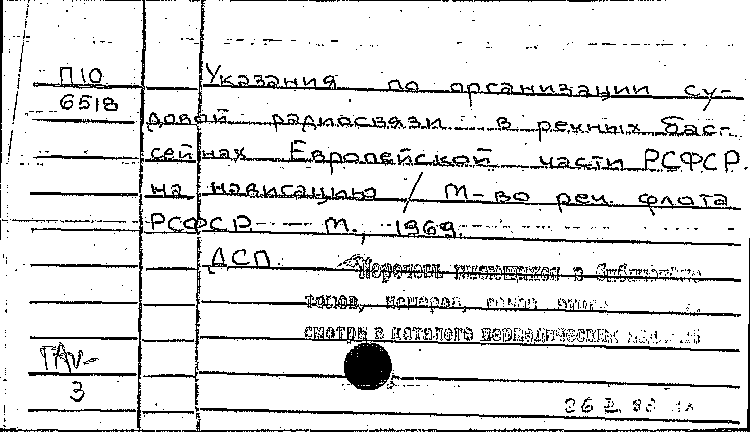 П10
6518
Указания по организации су-
довой радиосвязи в речных бас-
сейнах Европейской части РСФСР.
на навигацию / М-во реч. флота
РСФСР. — М., 1969.
ДСП
Перечень имеющихся в библиотеке
томов, номеров,
смотри в каталоге периодических
ГАУ-
3